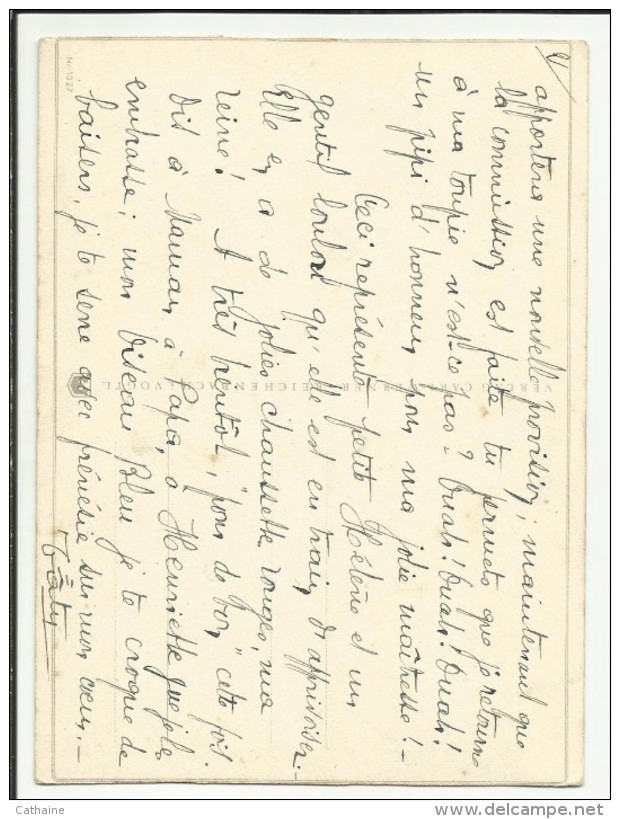 2/
apportera une nouvelle provision; maintenant que
la commission est faite tu permets que je retourne
à ma toupie n'est-ce pas? Ouah! Ouah! Ouah!
un pipi d'honneur pour ma jolie maîtresse! -
Ceci représente petite Hélène et un
gentil loulou qu'elle est en train d'apprivoiser -
Elle en a de jolies chaussette rouges, ma
reine! A très bientôt, "pour de bon" cette fois.
Dis à Maman, à Papa, à Henriette que je les
embrasse; mon Oiseau Bleu je te croque de
baisers, je te serre avec frénésie sur mon cœur. -
VERLAG CARL WERNER, REICHENBACH i. VOGTL.
No 1027
Cathaine